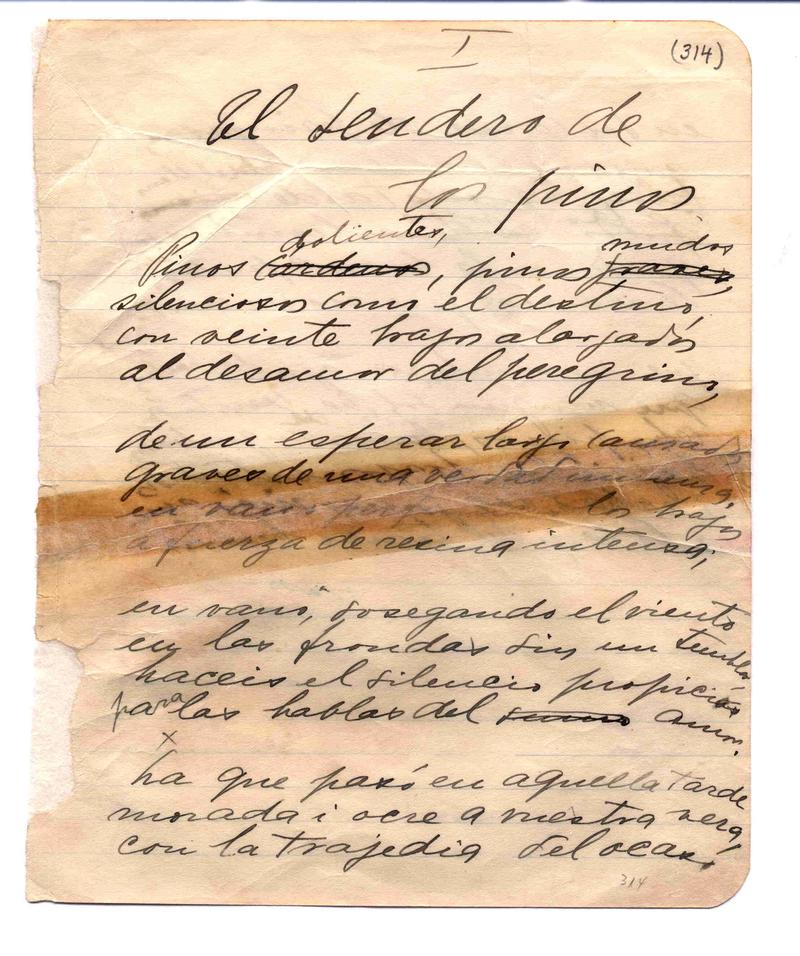 I
(314)
El sendero de
los pinos
dolientes, mudos
Pinos cardenos, pinos graves,
silenciosos como el destino,
con veinte brazos alargados
al desamor del peregrino,
de un esperar largo cansados
graves de una verdad inmensa,
en vano los brazos
a fuerza de resina intensa;
en vano, sosegando el viento
en las frondas sin un temblor
haceis el silencio propicio
para las hablas del sumo amor.
x
La que pasó en aquella tarde
morada i ocre a vuestra vera,
con la tragedia del ocaso
314